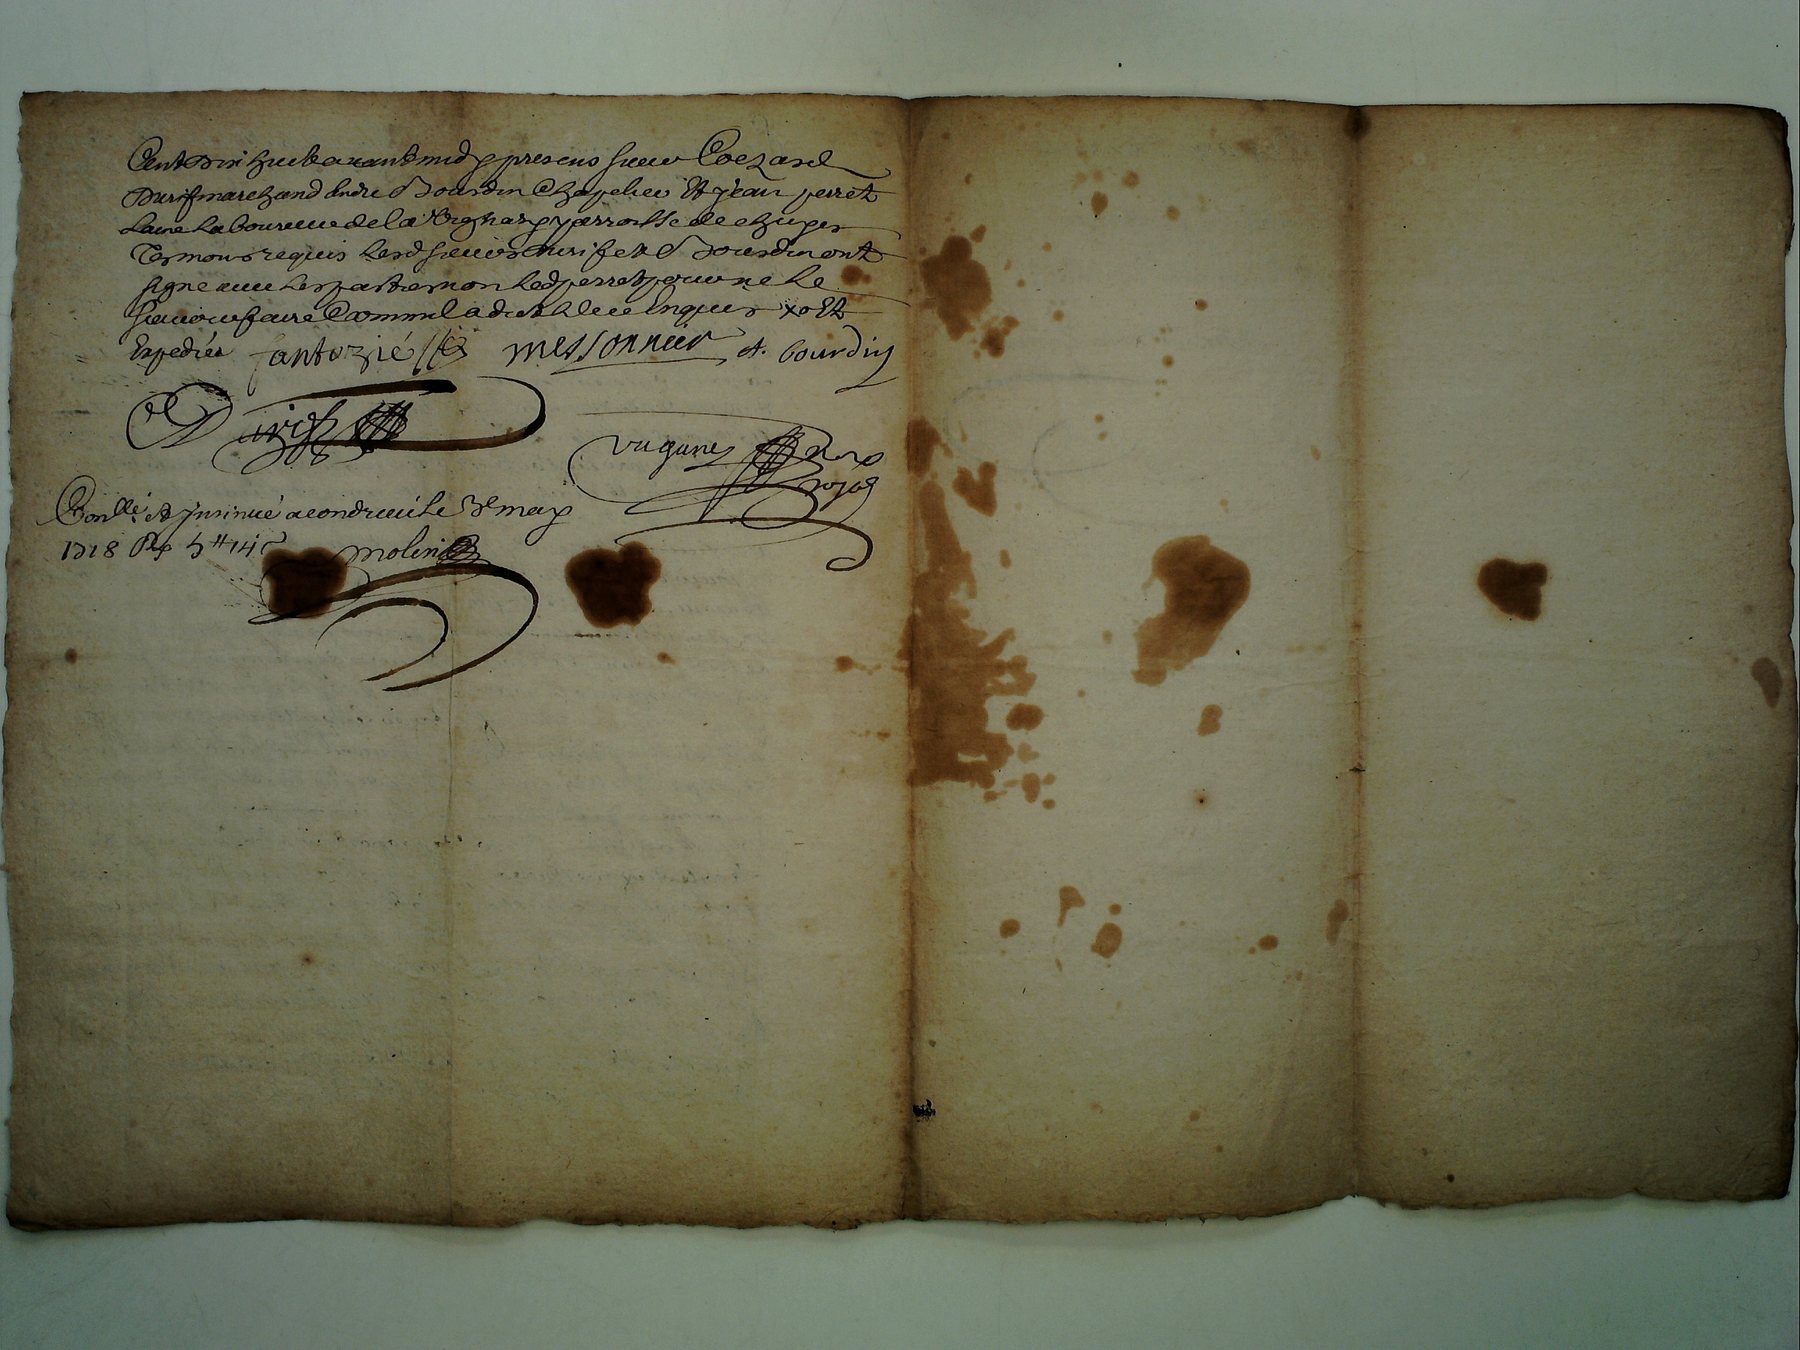 Cent dix huit avant midy presens sieur Coezard
Durif marchand André Bourdin Chapelier Et jean perret
Laine Laboureur de la parroisse de chuyer
Tesmoins requis Lesd sieurs durif et Bourdin ont
signe avec Les parties non Led perret pour ne le
scavoir faire Comm il a dict de ce Enquis Et
Expediée fantozié messonnier A. bourdin
Durif
vaganay No.re
royal
Conllé et jnsinué a condrieu le 3e may
1718 R 5tt 14s molin